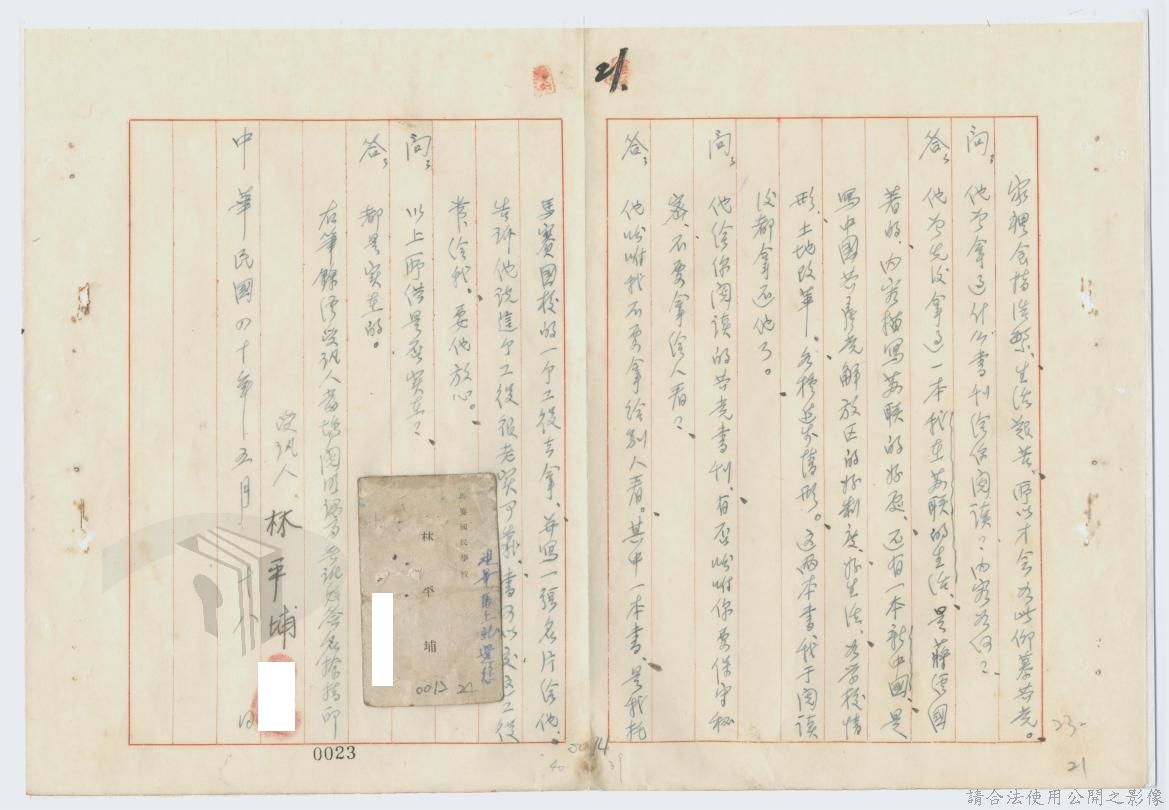 21.
家裡會指洪烈、生活艱苦、所以才會為此仰慕共党。
問：他曾拿過什么書刊給你閱讀？內容為何？
答：他曾先後拿過一本我在苏联的生活、是蔣經國
著的、內容描寫苏联的好處、还有一本新中國、是
寫中國共產党解放區的好制度、好生活、及学校情
形、土地改革、各種進步情形。这兩本書我于閱讀
後都拿还他了。
問：他給你閱讀的共党書刊、有否吩咐你要保守秘
密、不要拿給人看？
答：他吩咐我不要拿給别人看。其中一本書、是我托
馬賽國校的一个工役去拿、并寫一張名片給他、
告訴他說這个工役很老实可靠、書可以交這工役
帶給我。要他放心。
問：以上所供是否实在？
答：都是实在的。
右筆錄經受訊人當場閱明認為無訛後簽名捺指印
受訊人 林平埔
中華民國四十年五月十八日
馬賽國民學校
林平埔
0012 22
0023
14
40
39
23
21
請合法使用公開之影像